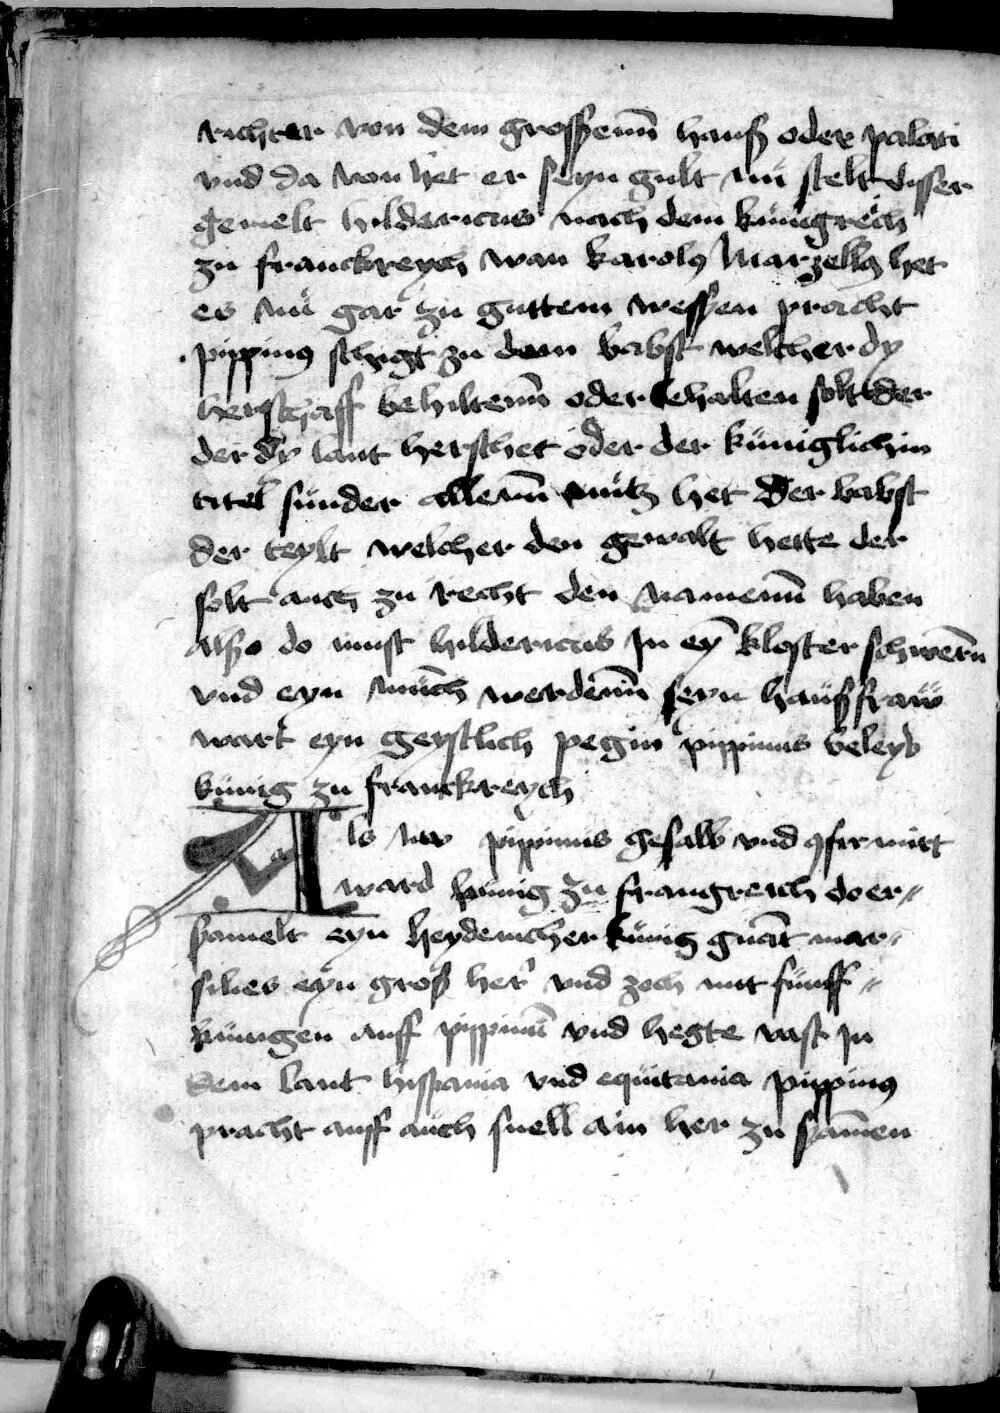 richter von dem grossenn hauß oder palati
vnd da von het er seyn gult nu stelt disser
gemelt hildericus nach dem kunigreich
zu franckreych wan karolus Marzellus het
es nu gar zu guttem wessen pracht
pippinus schigt zu dem babst welcher dy
herschaff behiltenn oder behalten solt der
der dy lant herschet oder der kuniglichin
titel sunder allenn nutz het Der babst
der teylt welcher den gewalt hette der
solt auch zu recht den namenn haben
Also do must hildericus jn eyn kloster schwern
vnd eyn munch werdenn seyn haußfraw
wart eyn geystlich pegin pippinus beleyb
kunig zu franckreych
Als nw pippinus gesalb vnd confirmirt
ward kunig zu frangreich do er⸗
samelt eyn heydenischer kunig gnant mar⸗
silies eyn groß her vnd zoch mit funff ⸗
kunigen auff pippinum vnd hegte vast jn
dem lant hispania vnd equitania pippinus
pracht auff auch snell ain her zu samen